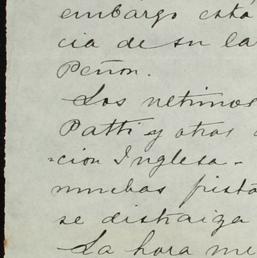 embargo está
cia de su la
Peñon.
Los
Patti y otros
cion Inglesa-
muchas
se distraiga
La hora me